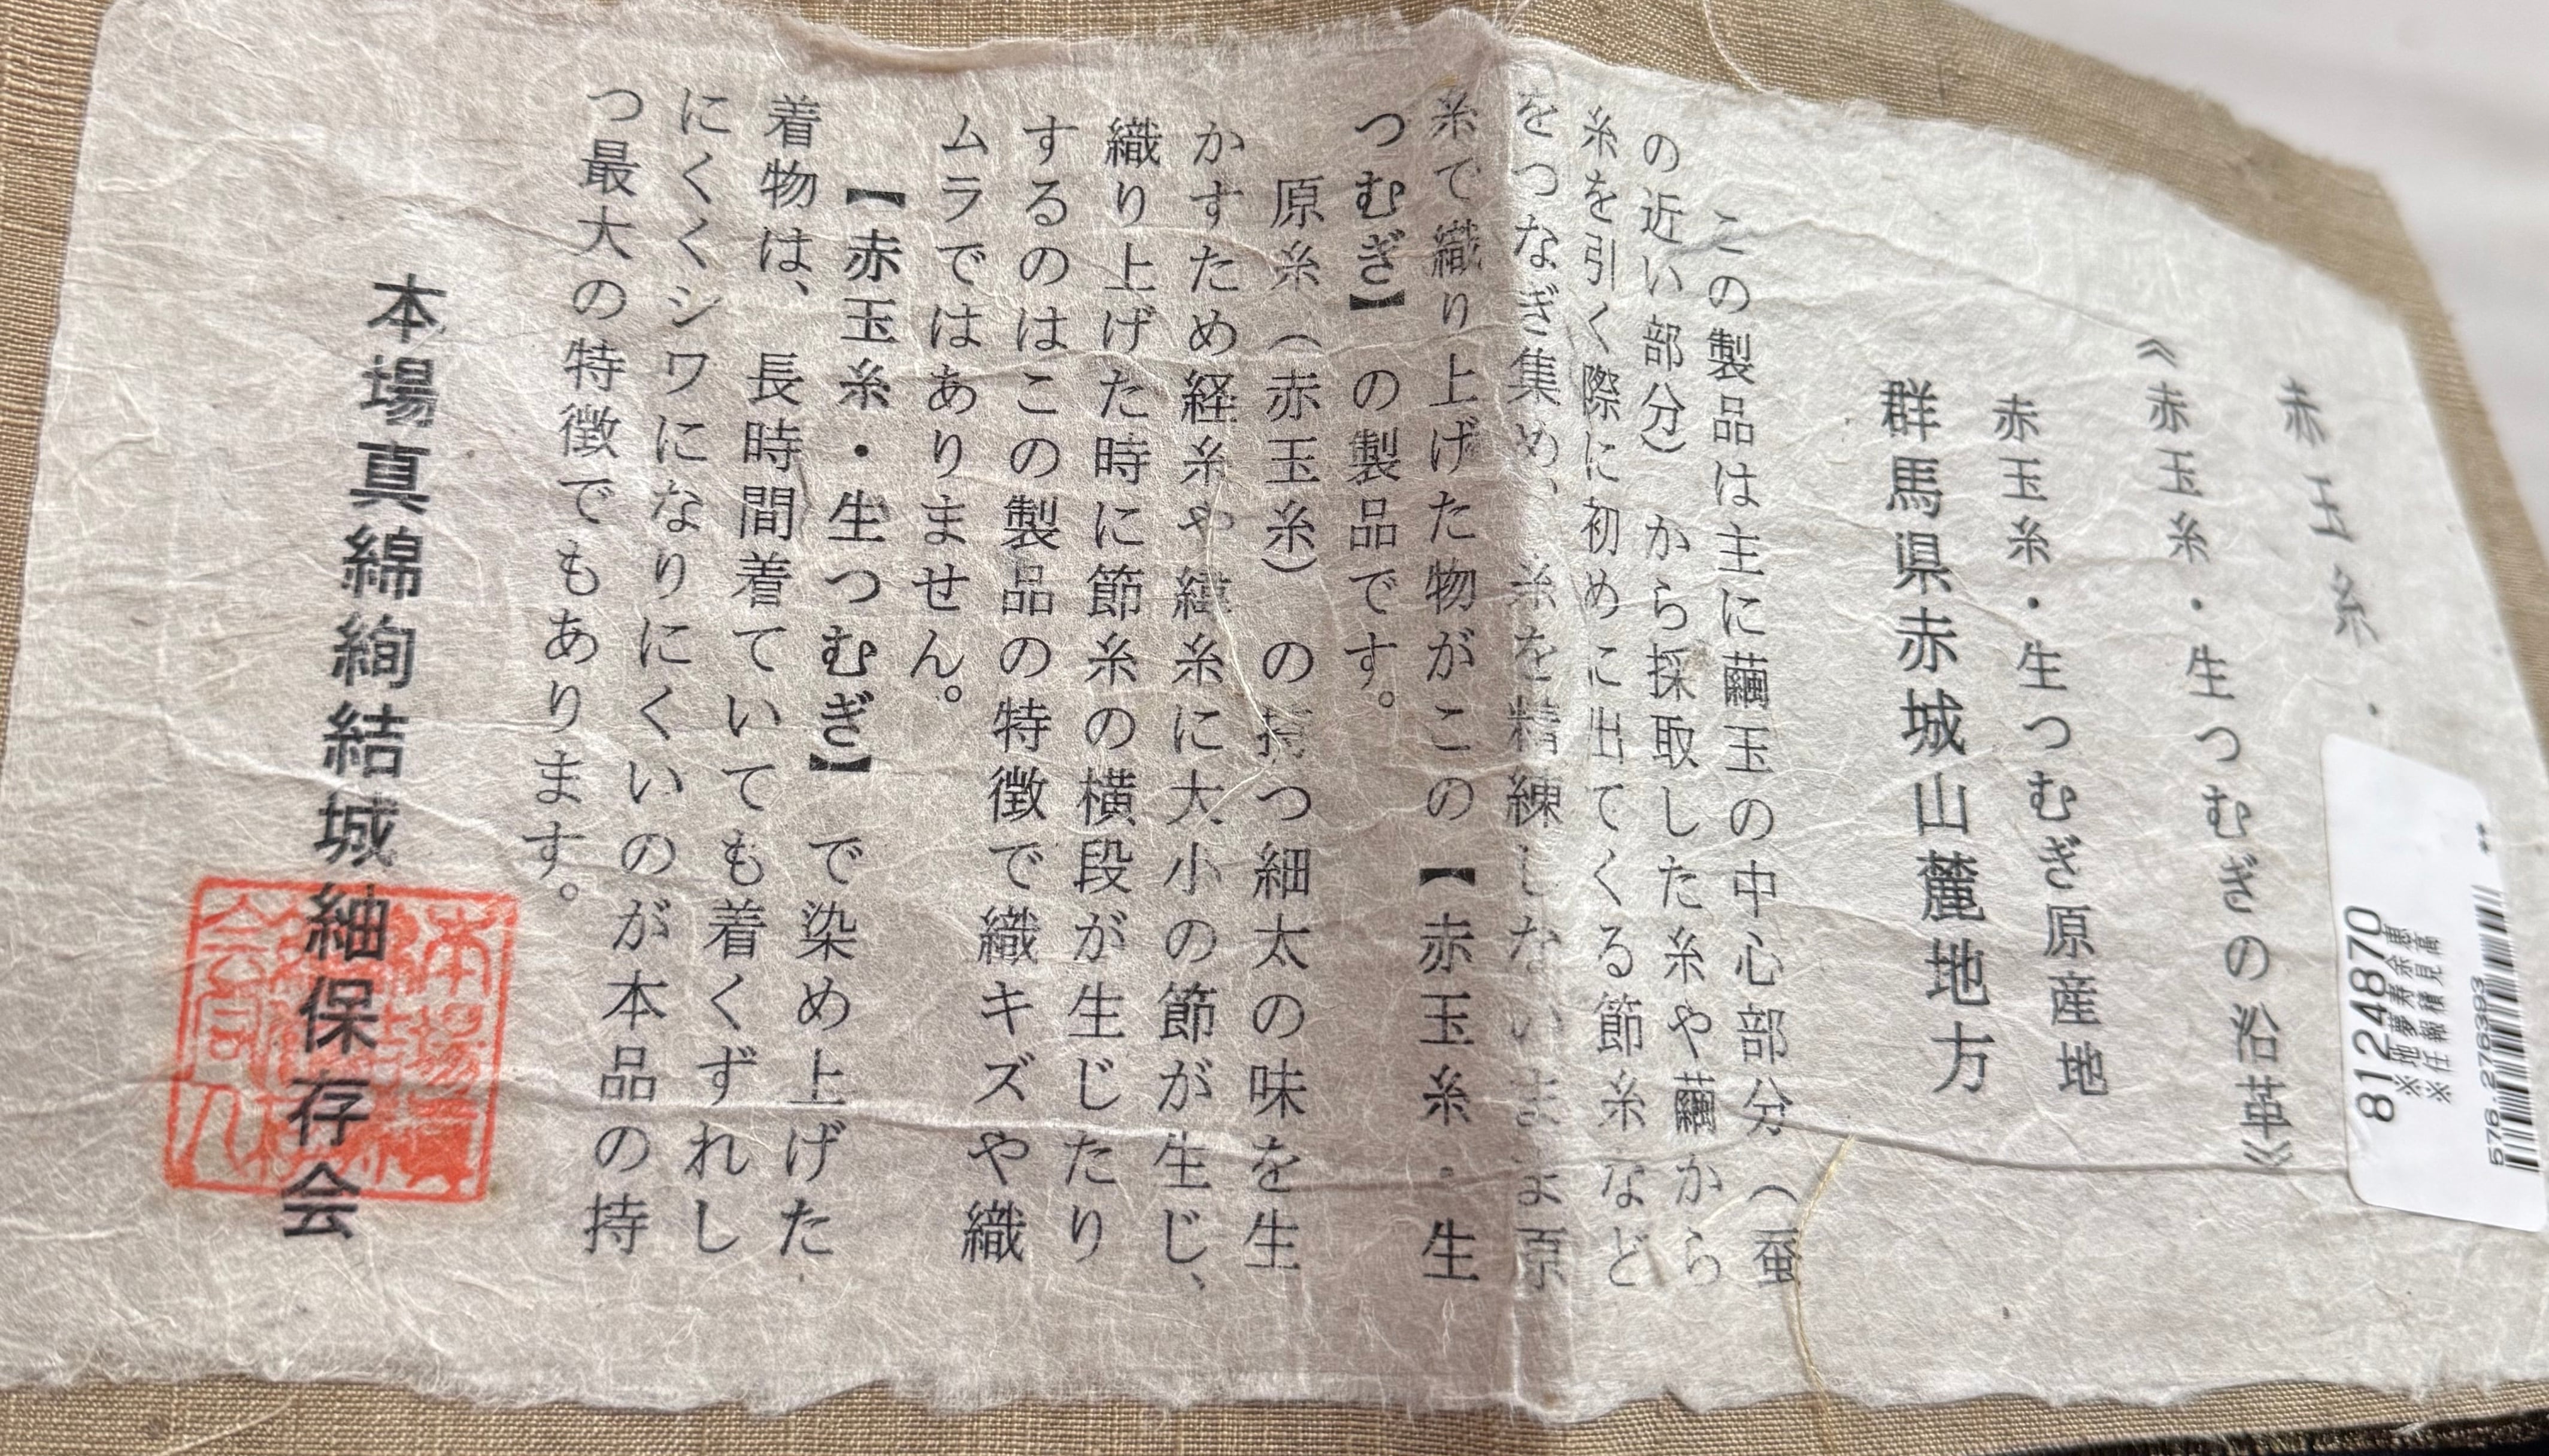 赤玉糸・
《赤玉糸・生つむぎの沿革》
赤玉糸・生つむぎ原産地
群馬県赤城山麓地方
この製品は主に繭玉の中心部分（蚕
の近い部分）から採取した糸や繭から
糸を引く際に初めに出てくる節糸など
をつなぎ集め、糸を精練しないまま原
糸で織り上げた物がこの【赤玉糸・生
つむぎ】の製品です。
原糸（赤玉糸）の持つ細太の味を生
かすため経糸や緯糸に大小の節が生じ、
織り上げた時に節糸の横段が生じたり
するのはこの製品の特徴で織キズや織
ムラではありません。
【赤玉糸・生つむぎ】で染め上げた
着物は、長時間着ていても着くずれし
にくくシワになりにくいのが本品の持
つ最大の特徴でもあります。
本場真綿絢結城紬保存会
8124870
576.2763393